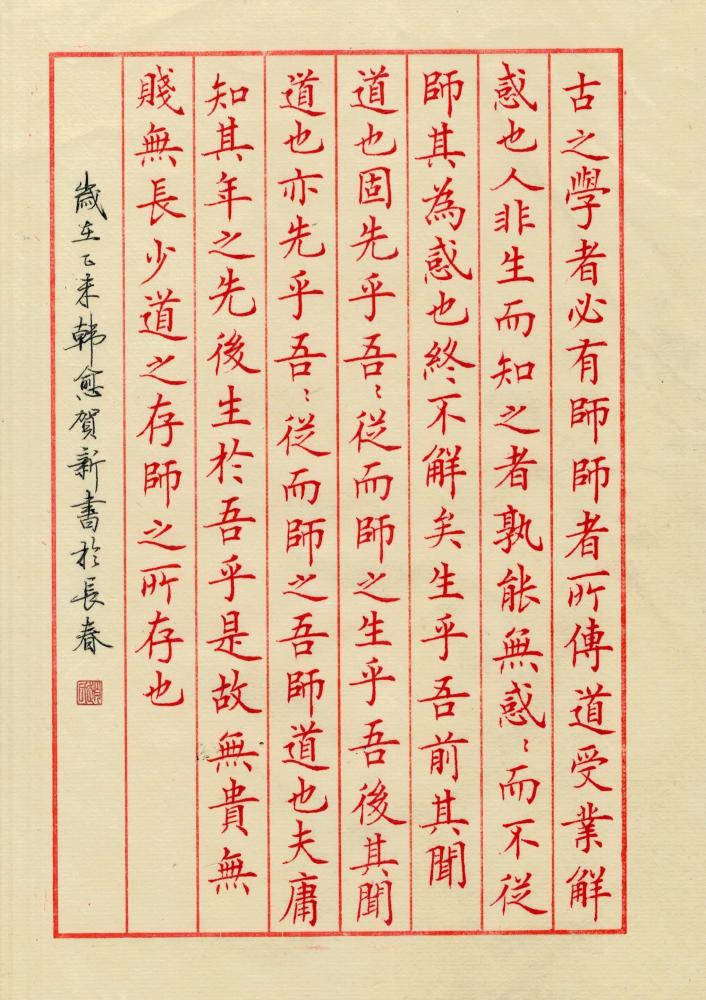 古之學者必有師師者所傳道受業解
惑也人非生而知之者孰能無惑〻而不從
師其為惑也終〻不解矣生乎吾前其聞
道也固先乎吾〻從而師之生乎吾後其聞
道也亦先乎吾〻從而師之吾師道也夫庸
知其年之先後生於吾乎是故無貴無
賤無長少道之存師之所存也
歲在乙未韓愈賀新書於長春